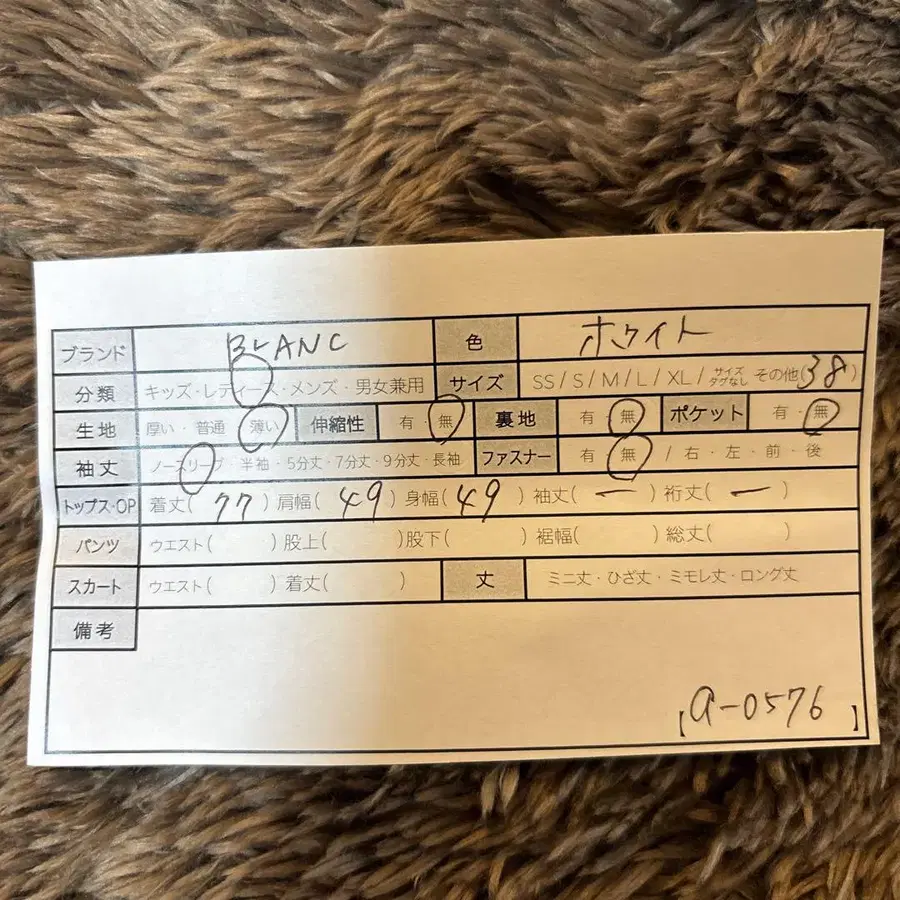 ブランド BLANC 色 ホワイト
分類 キッズ・レディース・メンズ・男女兼用 サイズ SS/S/M/L/XL/サイズタグなし その他(38)
生地 厚い・普通 薄い 伸縮性 有・無 裏地 有・無 ポケット 有・無
袖丈 ノースリーブ・半袖・5分丈・7分丈・9分丈・長袖 ファスナー 有・無 / 右・左・前・後
トップス・OP 着丈( 77 ) 肩幅( 49 ) 身幅( 49 ) 袖丈( ー ) 裄丈( ー )
パンツ ウエスト( ) 股上( ) 股下( ) 裾幅( ) 総丈( )
スカート ウエスト( ) 着丈( ) 丈 ミニ丈・ひざ丈・ミモレ丈・ロング丈
備考
【a-0576】